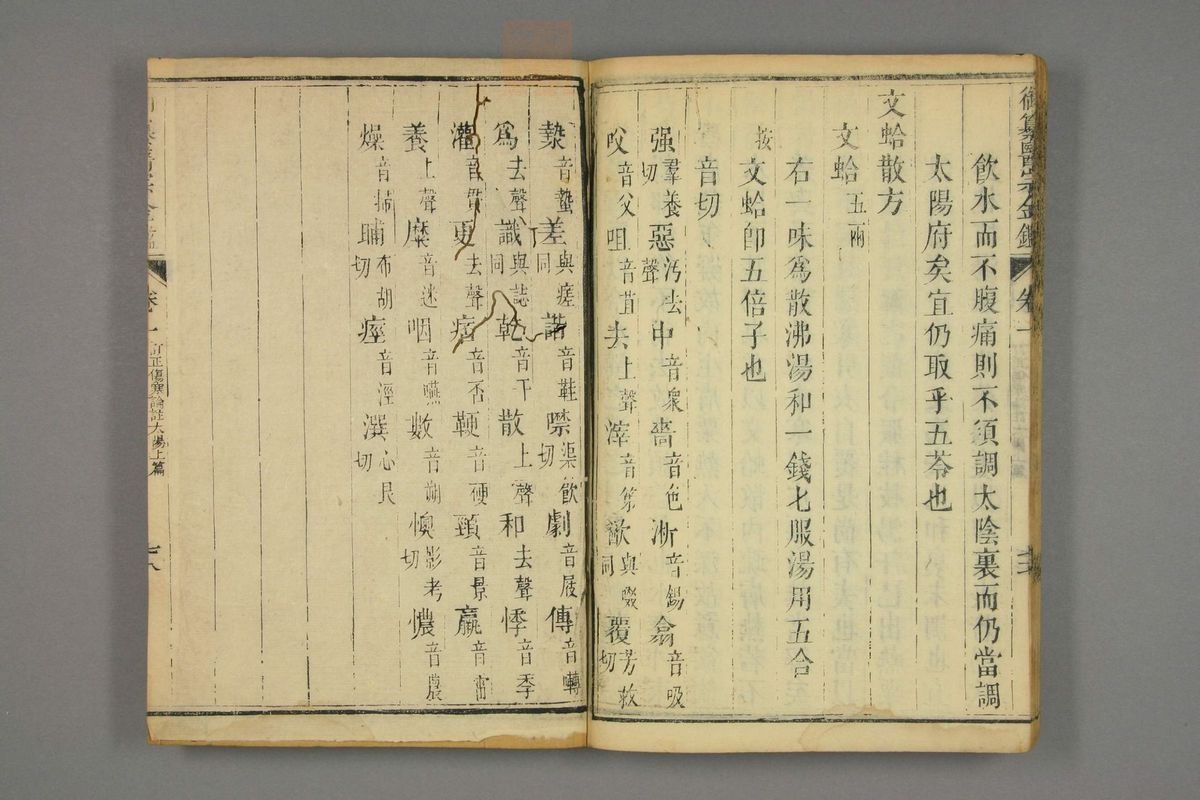 御纂醫宗金鑑 卷一
飲水而不腹痛則不須調太陰裏而仍當調
太陽府矣宜仍取乎五苓也
文蛤散方
文蛤五兩
右一味爲散沸湯和一錢匕服湯用五合
按文蛤卽五倍子也
音切
强羣養切 惡汚去聲 中音衆 嗇音色 淅音錫 翕音吸
㕮音父 咀音苴 去上聲 滓音第 歠與啜同 覆芳救切
漐音蟄 差與瘥同 諧音鞋 噤渠飮切 劇音屐 傳音囀
爲去聲 識與誌同 乾音干 散上聲 和去聲 悸音季
灌音貫 更去聲 痞音否 鞕音硬 頸音景 羸音雷
養上聲 糜音迷 咽音嚥 數音朔 懊影考切 憹音農
燥音掃 晡布胡切 痙音涇 潠心艮切
卷一 訂正傷寒論註太陽上篇
七八